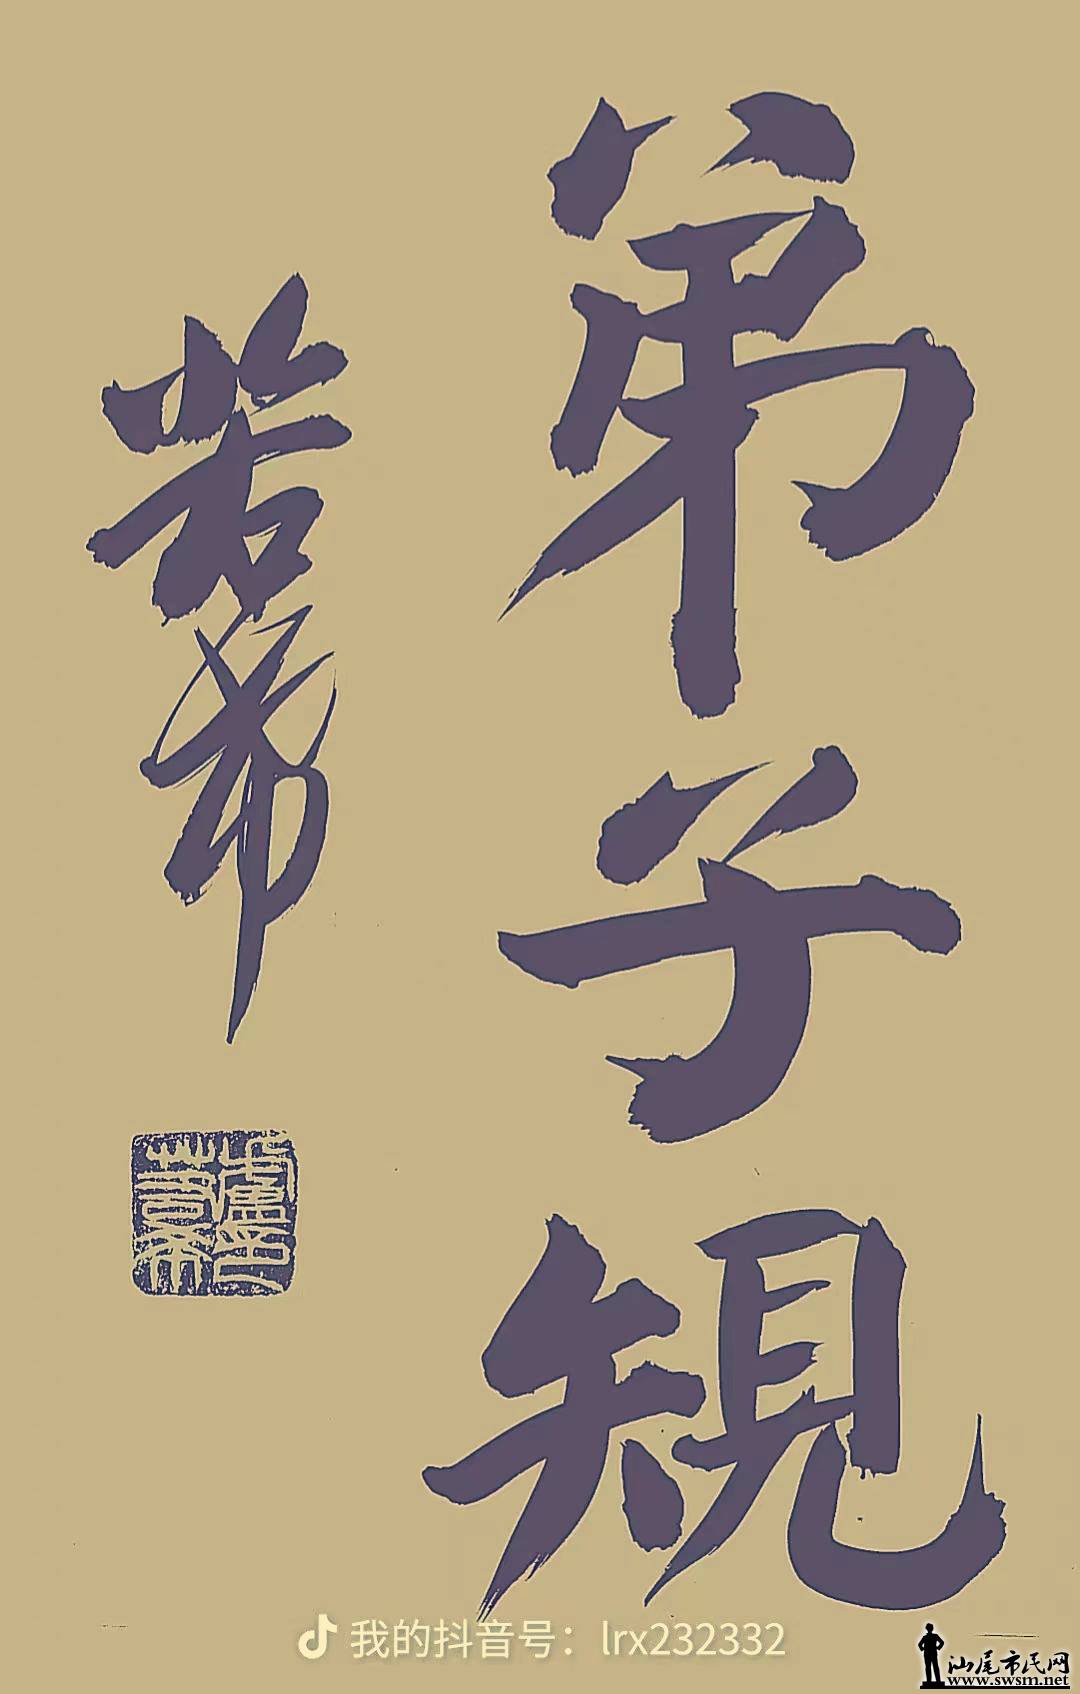 弟子規
若希
我的抖音号：lrx232332
汕尾市民网
www.swsm.net